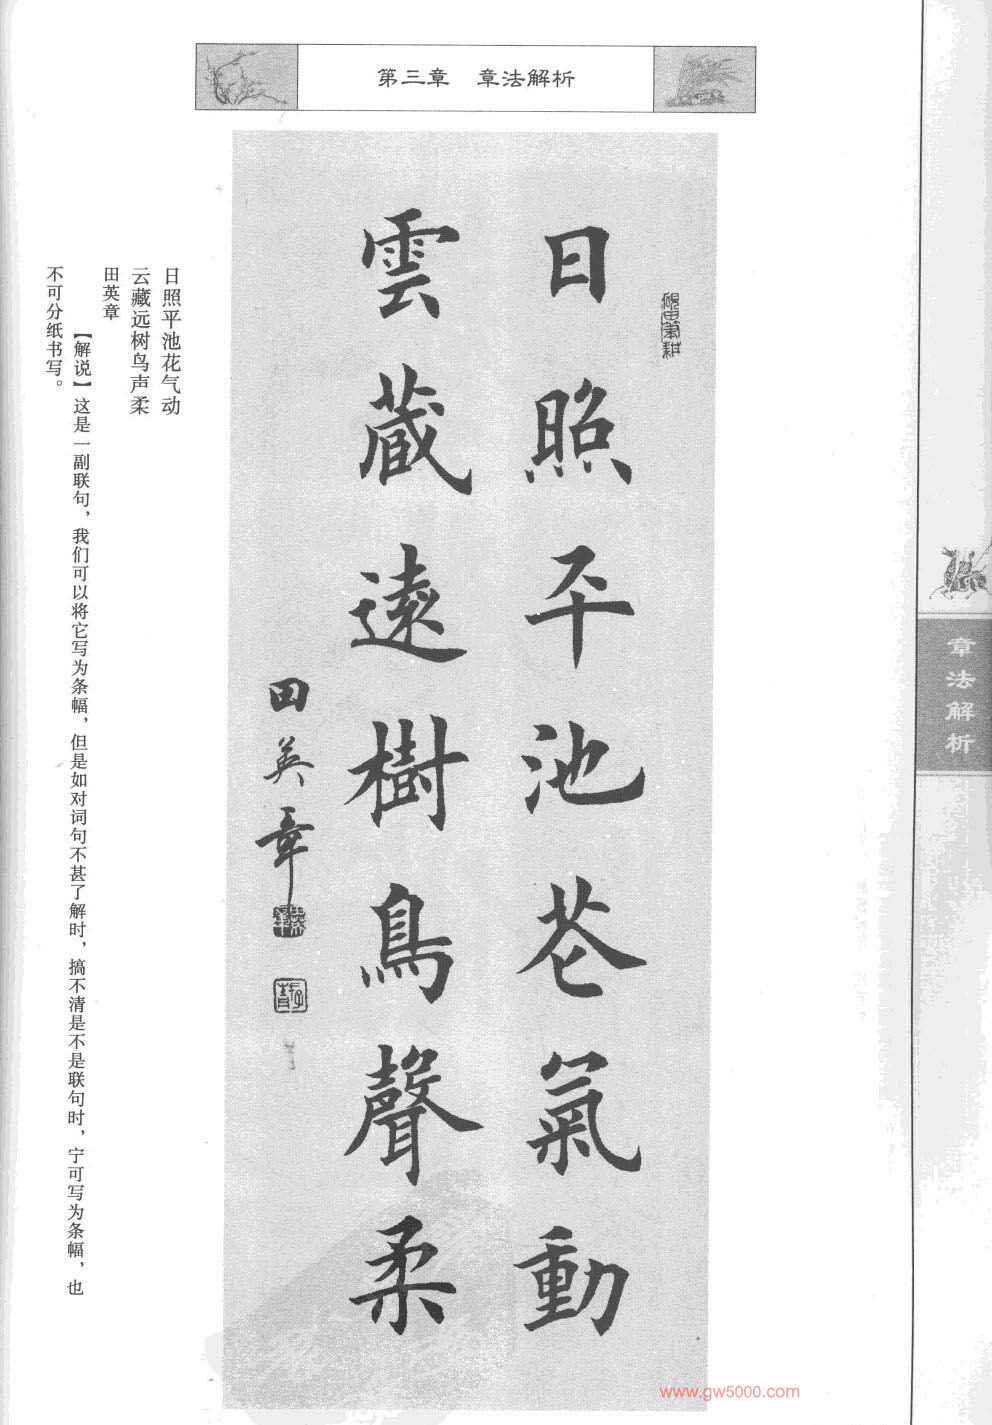 第三章　章法解析
日照平池花氣動
雲藏遠樹鳥聲柔
田英章
日照平池花气动
云藏远树鸟声柔
田英章
【解说】这是一副联句，我们可以将它写为条幅，但是如对词句不甚了解时，搞不清是不是联句时，宁可写为条幅，也
不可分纸书写。
章法解析
www.gw5000.com